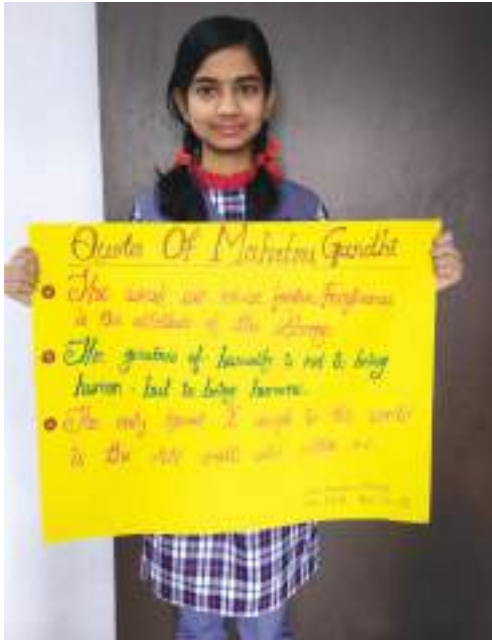 Quotes Of Mahatma Gandhi
The weak can never forgive. Forgiveness
is the attribute of the strong.
The greatness of humanity is not to being
human - but to being humane.
The only tyrant I accept in this world
is the still small voice within me.